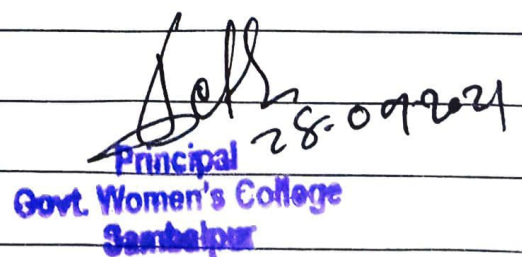 28.09.2021
Principal
Govt. Women's College
Sambalpur